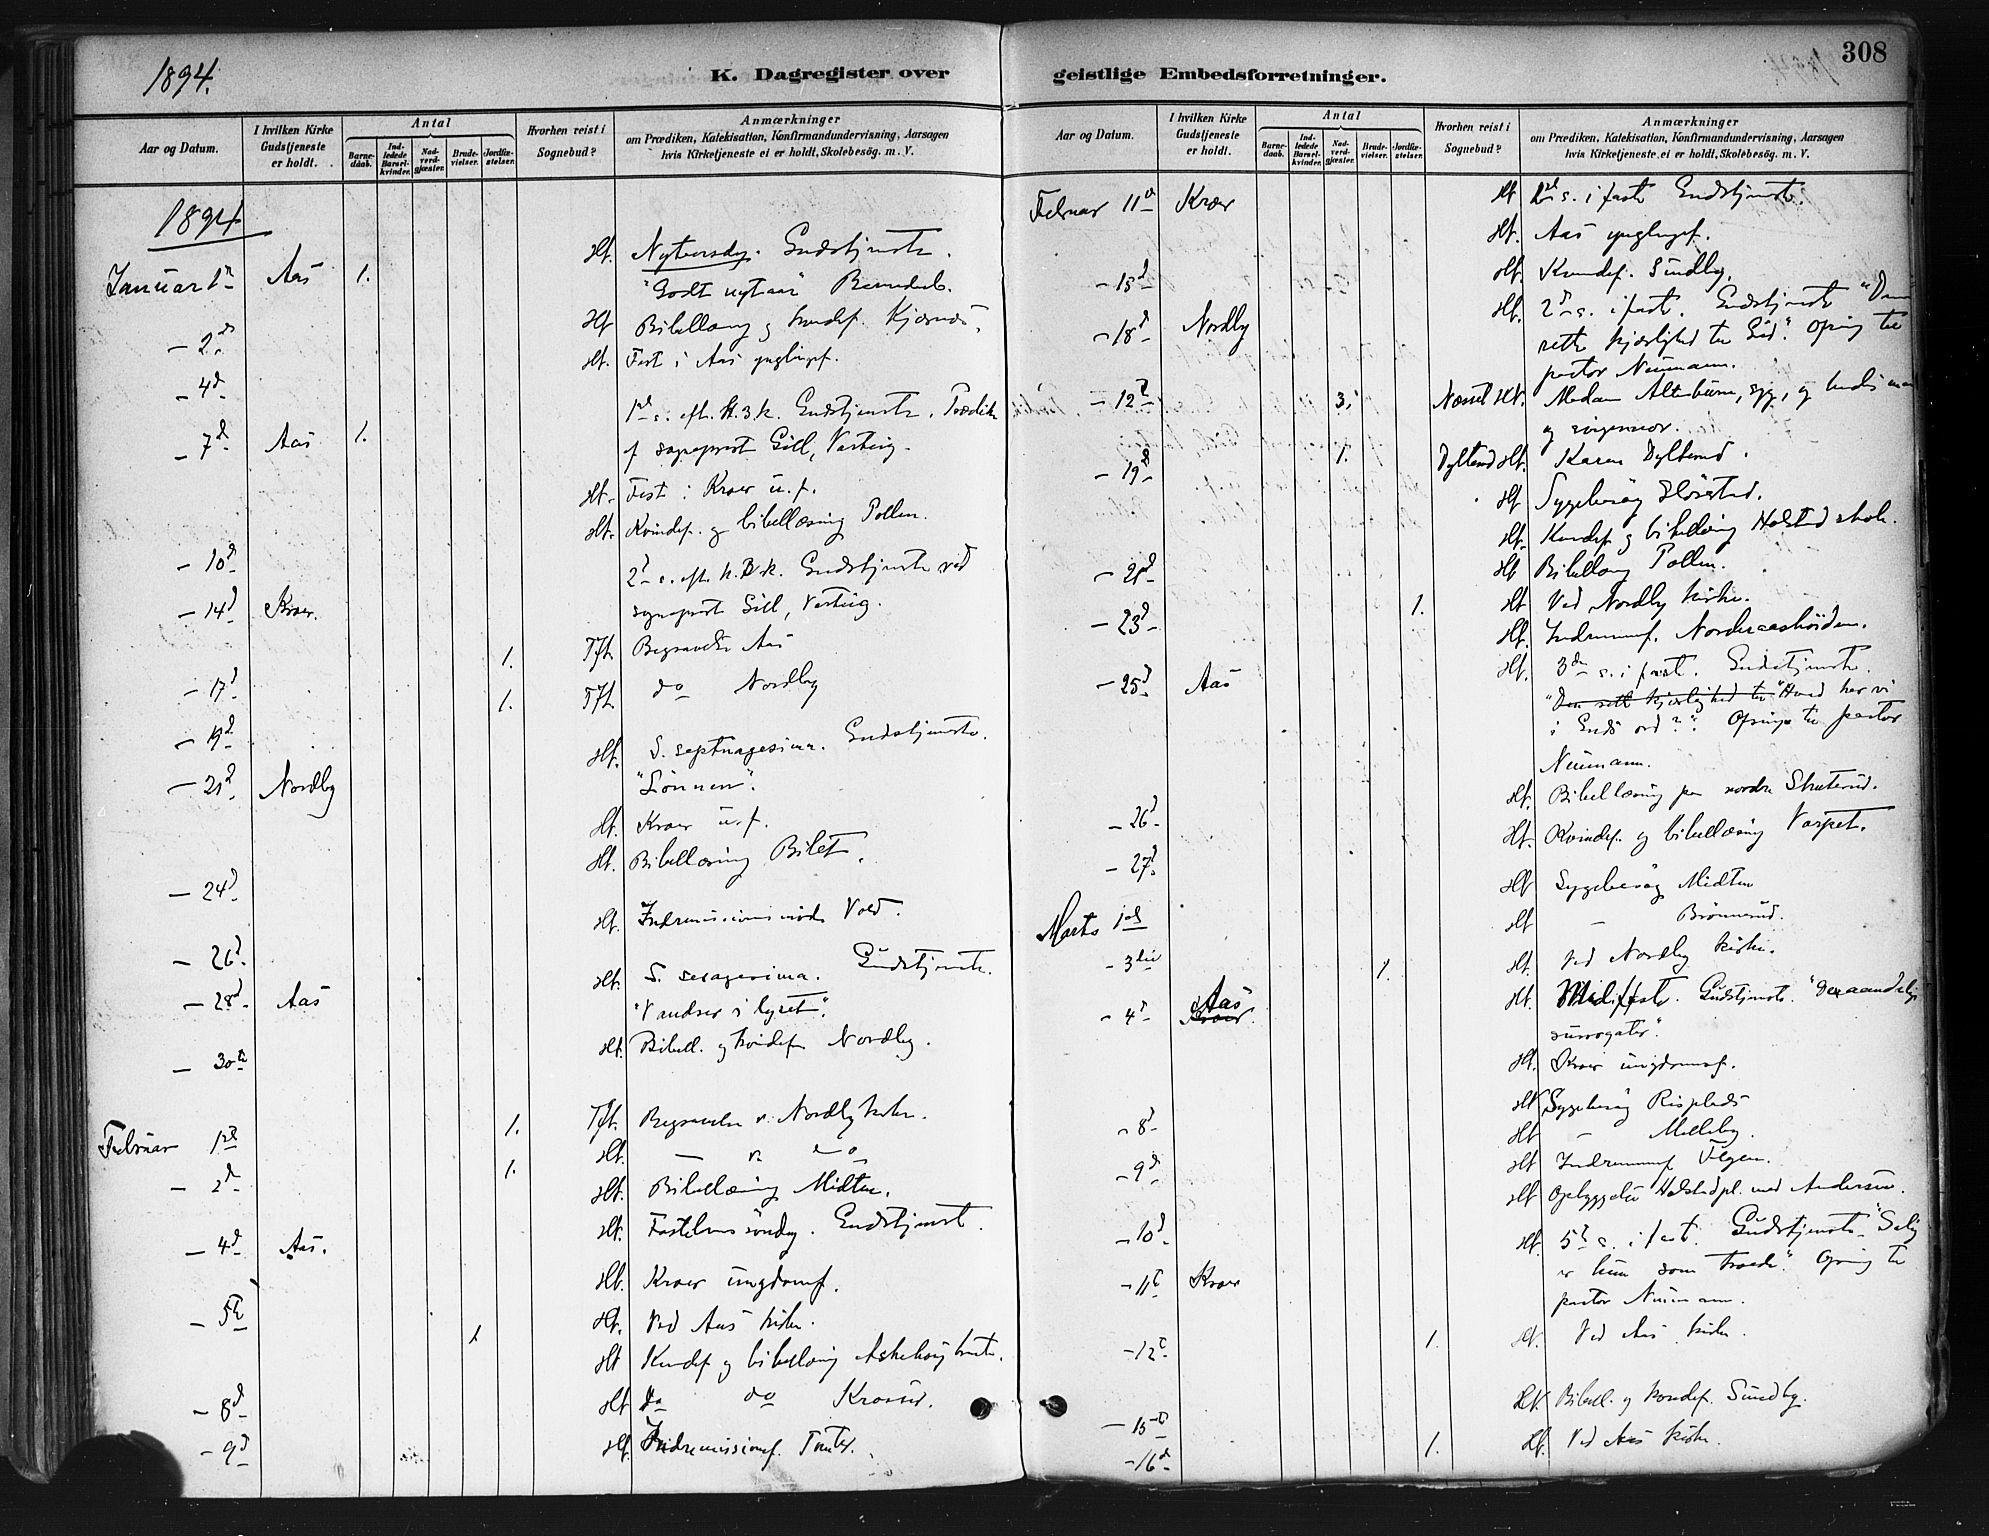 1894.
K. Dagregister over
Aar og Datum.
I hvilken Kirke Gudstjeneste er holdt.
Antal
Barnedaab.
Indledede Barselkvinder.
Nadverdgjæster.
Brudevielser.
Jordfæstelser.
Hvorhen reist i Sognebud?
Anmærkninger
om Prædiken, Katekisation, Konfirmandundervisning, Aarsagen
hvis Kirketjeneste ei er holdt, Skolebesög. m. V.
1894
Januar 1 Aas 1. Hf. Nytaarsdag. Gudstjeneste.
"Godt nytaar" Barnedaab.
- 2d Hf Bibellæsn. g kvindef. Kjærnes.
- 4d Hf. Fest i Aas ynglingef.
- 7d Aas 1. 1ste s. eft. H.3.k. Gudstjeneste. Prædik
f sogneprest Gill, Vestby.
Hf. Fest i Kroer u.f.
Hf. Kvindef. og bibellæsning Pollen.
- 10d
- 14d Kroer. 2d s. eft. H.3.k. Gudstjeneste ved
sogneprest Gill, Vestby.
- 17d 1. Begravelse Aas
- 19d 1. do Nordby
- 21d Nordby Hf. S. septuagesima. Gudstjeneste.
"Lönnen".
Hf. Kroer u.f.
- 24d Hf. Bibellæsning Bilet.
- 26d Hf. Indremissionsmöde Vold.
- 28d Aas Hf. S. sexagesima. Gudstjeneste.
"Vandrer i lyset".
- 30te Hf. Bibell. og kvindef. Nordby.
Februar 1ste 1. Begravelse v. Nordby kirke.
- 2d 1. Hf. — " — do
Hf. Bibellæsning Midten.
- 4d Aas. Hf. Fastelavnssöndag. Gudstjenest.
Hf. Kroer ungdomsf.
- 5te 1 Hf. Ved Aas kirke.
Hf Kvindef og bibellæsning
- 8d Hf do do Kroerud.
- 9d Hf. Indremissionsf.
308
geistlige Embedsforretninger.
Aar og Datum.
I hvilken Kirke Gudstjeneste er holdt.
Antal
Barnedaab.
Indledede Barselkvinder.
Nadverdgjæster.
Brudevielser.
Jordfæstelser.
Hvorhen reist i Sognebud?
Anmærkninger
om Prædiken, Katekisation, Konfirmandundervisning, Aarsagen
hvis Kirketjeneste ei er holdt, Skolebesög. m. V.
Februar 11te Kroer Hf 1ste s. i faste Gudstjeneste.
Hf. Aas ynglingef.
- 15d Hf. Kvindef. Sundby.
- 18d Nordby Hf. 2d s. i faste. Gudstjeneste "Den
rette kjærlighed til Gud." Ofring til
pastor Neumann.
- 12te 3. Næsset Hf. Madam syg, og hendes man
og
- 19de 1. Dyllerud Hf. Karen Dyllerud.
Hf Sygebesög
Hf. Kvindef og bibellæsning Holstad skole.
- 21d Hf Bibellæsn. Pollen.
- 23d 1. Hf. Ved Nordby kirke.
Hf. Indremf. Nordreaashöiden.
- 25d Aas Hf. 3die s. i fast. Gudstjeneste.
"Den rette kjærlighed til "Hvad har vi
i Guds ord?". Ofring til pastor
Neumann.
- 26d Hf. Bibellæsning paa nordre Skuterud.
- 27d Hf. Kvindef. og bibellæsning Vaspet.
Marts 1ste Hf Sygebesög Midten
Hf — Brönnerud.
- 3die 1. Hf. Ved Nordby kirke.
- 4d Aas Kroer. Hf. Midfaste. Gudstjeneste. "De aandelige
surrogater".
Hf. Kroer ungdomsf.
- 8d Hf Sygebesög Rispleds
Hf — Melleby.
- 9d Hf Indremf
- 10d Hf Opbyggelse Holstadpl. med Andersen.
- 11te Kroer Hf. 5te s. i fast. Gudstjeneste "Salig
er hun som troede". Ofring til
pastor Neumann.
- 12te 1. Hf. Ved Aas kirke.
- 15te Hf. Bibell. og kvindef. Sundby.
- 16d 1. Hf. Ved Aas kirke.